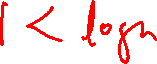 1 < log n